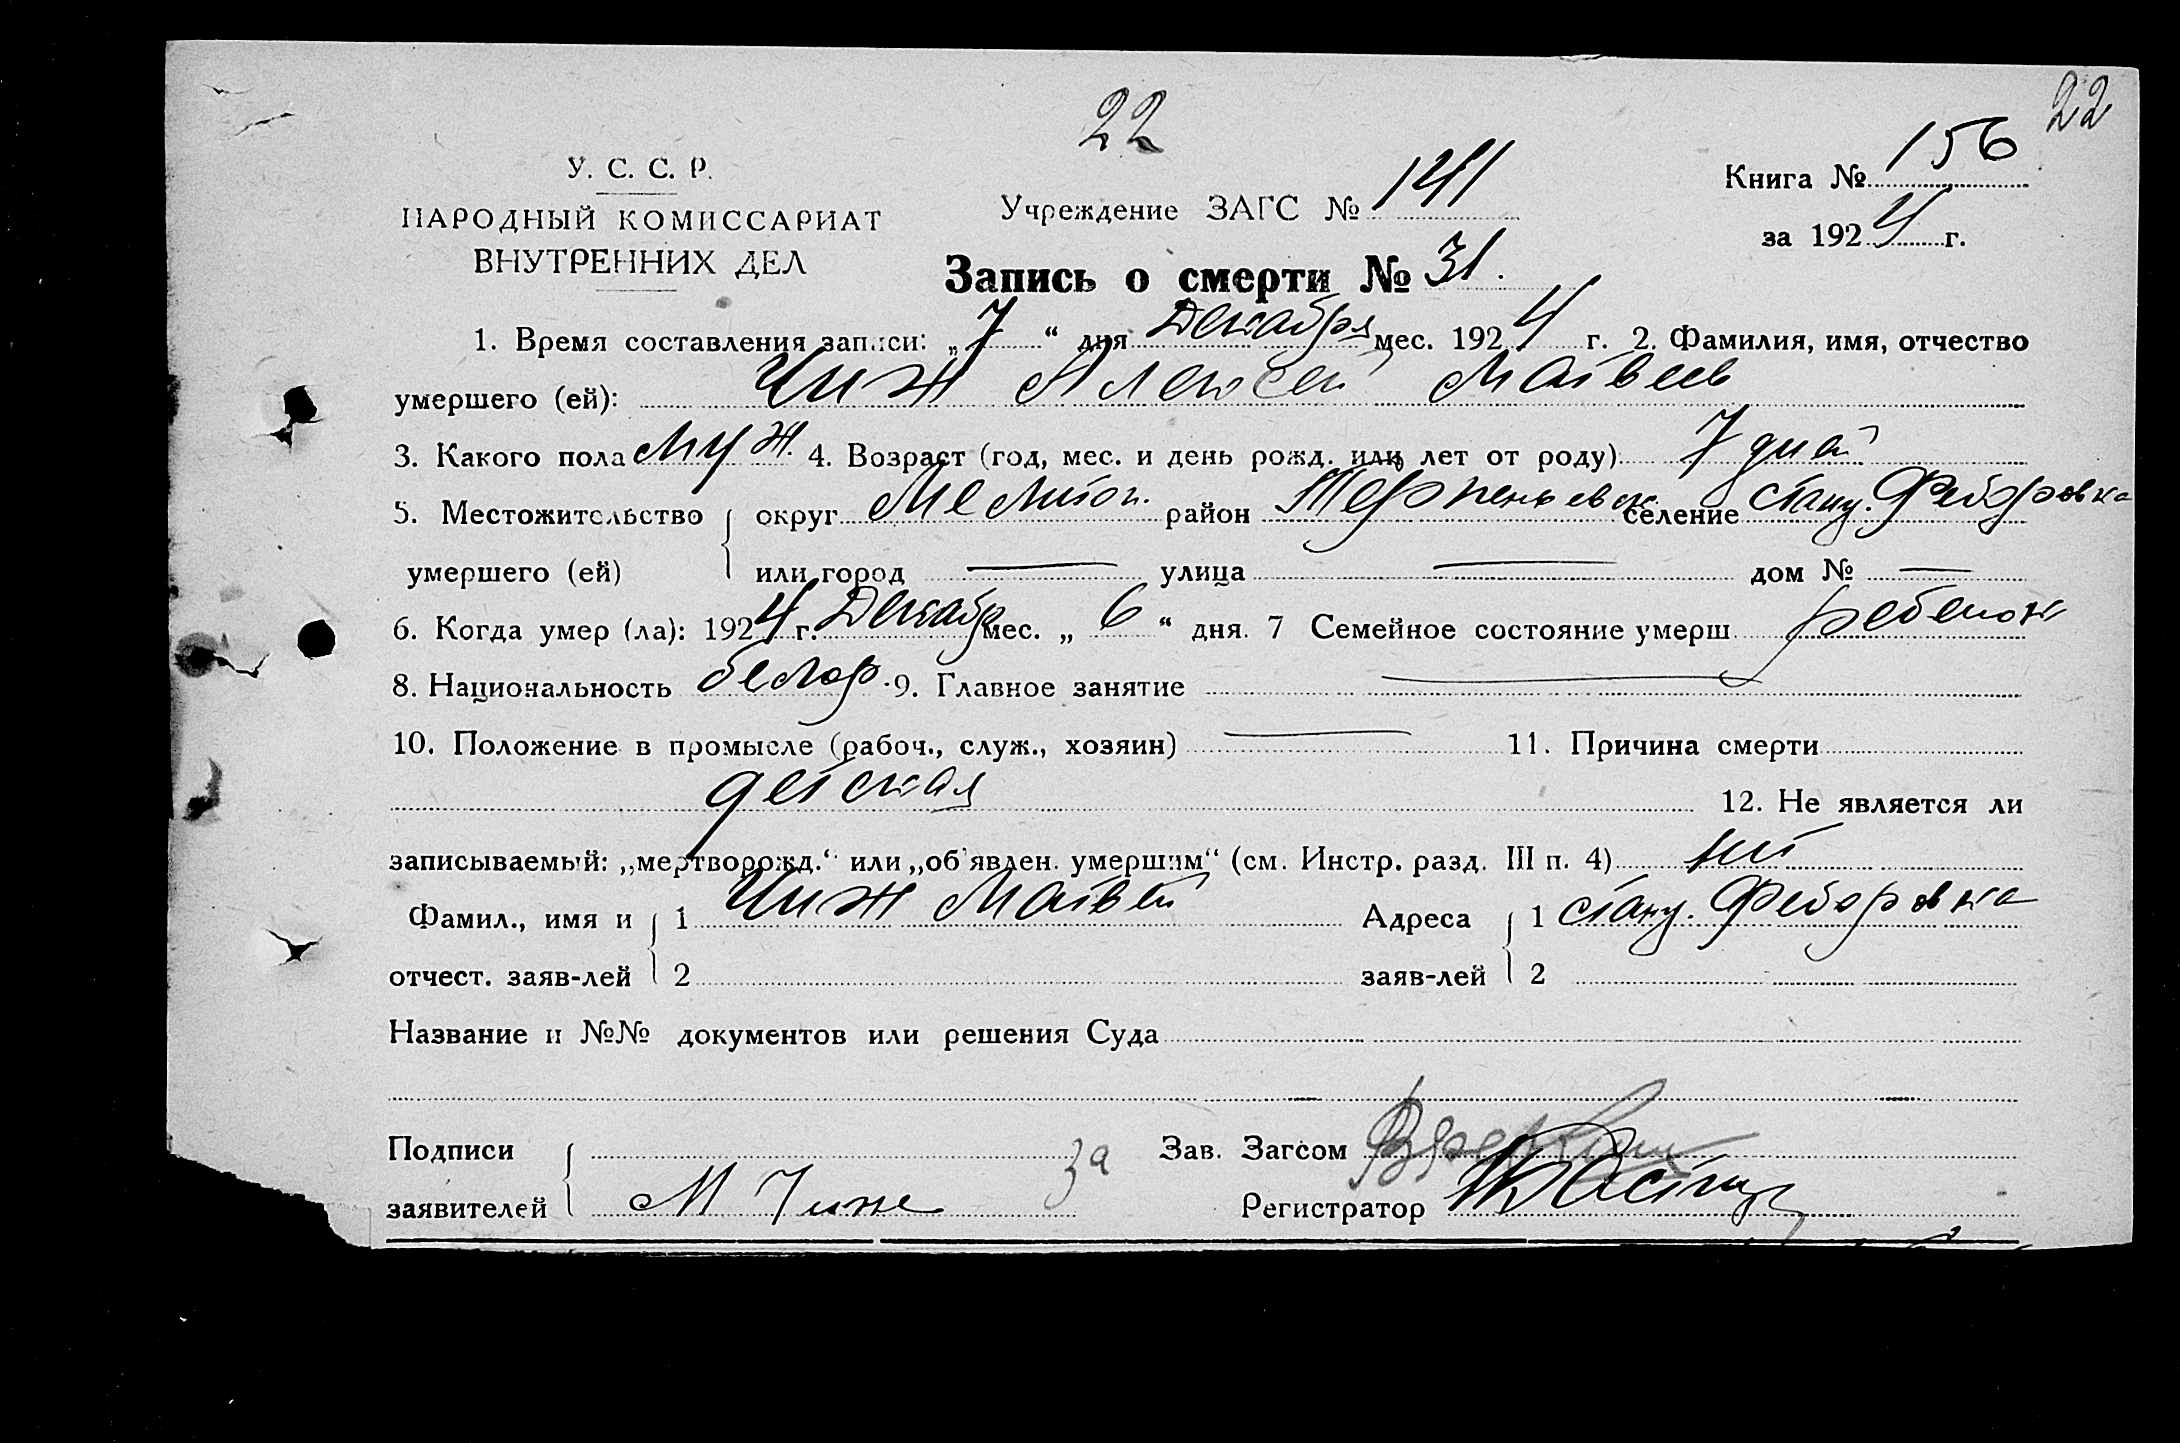 22
22
У. С. С. Р.
НАРОДНЫЙ КОМИССАРИАТ
ВНУТРЕННИХ ДЕЛ
Учреждение ЗАГС № 141
Книга № 156
за 1924 г.
Запись о смерти № 31.
1. Время составления записи: „7“ дня Декабря мес. 1924 г. 2. Фамилия, имя, отчество
умершего (ей): Чиж Алексей Матвеев
3. Какого пола муж. 4. Возраст (год, мес. и день рожд. или лет от роду) 7 дней
5. Местожительство округ Мелитоп. район Терпеньевск селение станц. Федоровка
умершего (ей) или город — улица — дом № —
6. Когда умер (ла): 1924 г. Декабр мес. „6“ дня. 7 Семейное состояние умерш. ребенок
8. Национальность белор. 9. Главное занятие —
10. Положение в промысле (рабоч., служ., хозяин) — 11. Причина смерти
детская 12. Не является ли
записываемый: „мертворожд.“ или „об'явлен. умершим“ (см. Инстр. разд. III п. 4) нет
Фамил., имя и 1 Чиж Матвей Адреса 1 станц. Федоровка
отчест. заяв-лей 2 заяв-лей 2
Название и №№ документов или решения Суда
Подписи за Зав. Загсом
заявителей М Чиж Регистратор